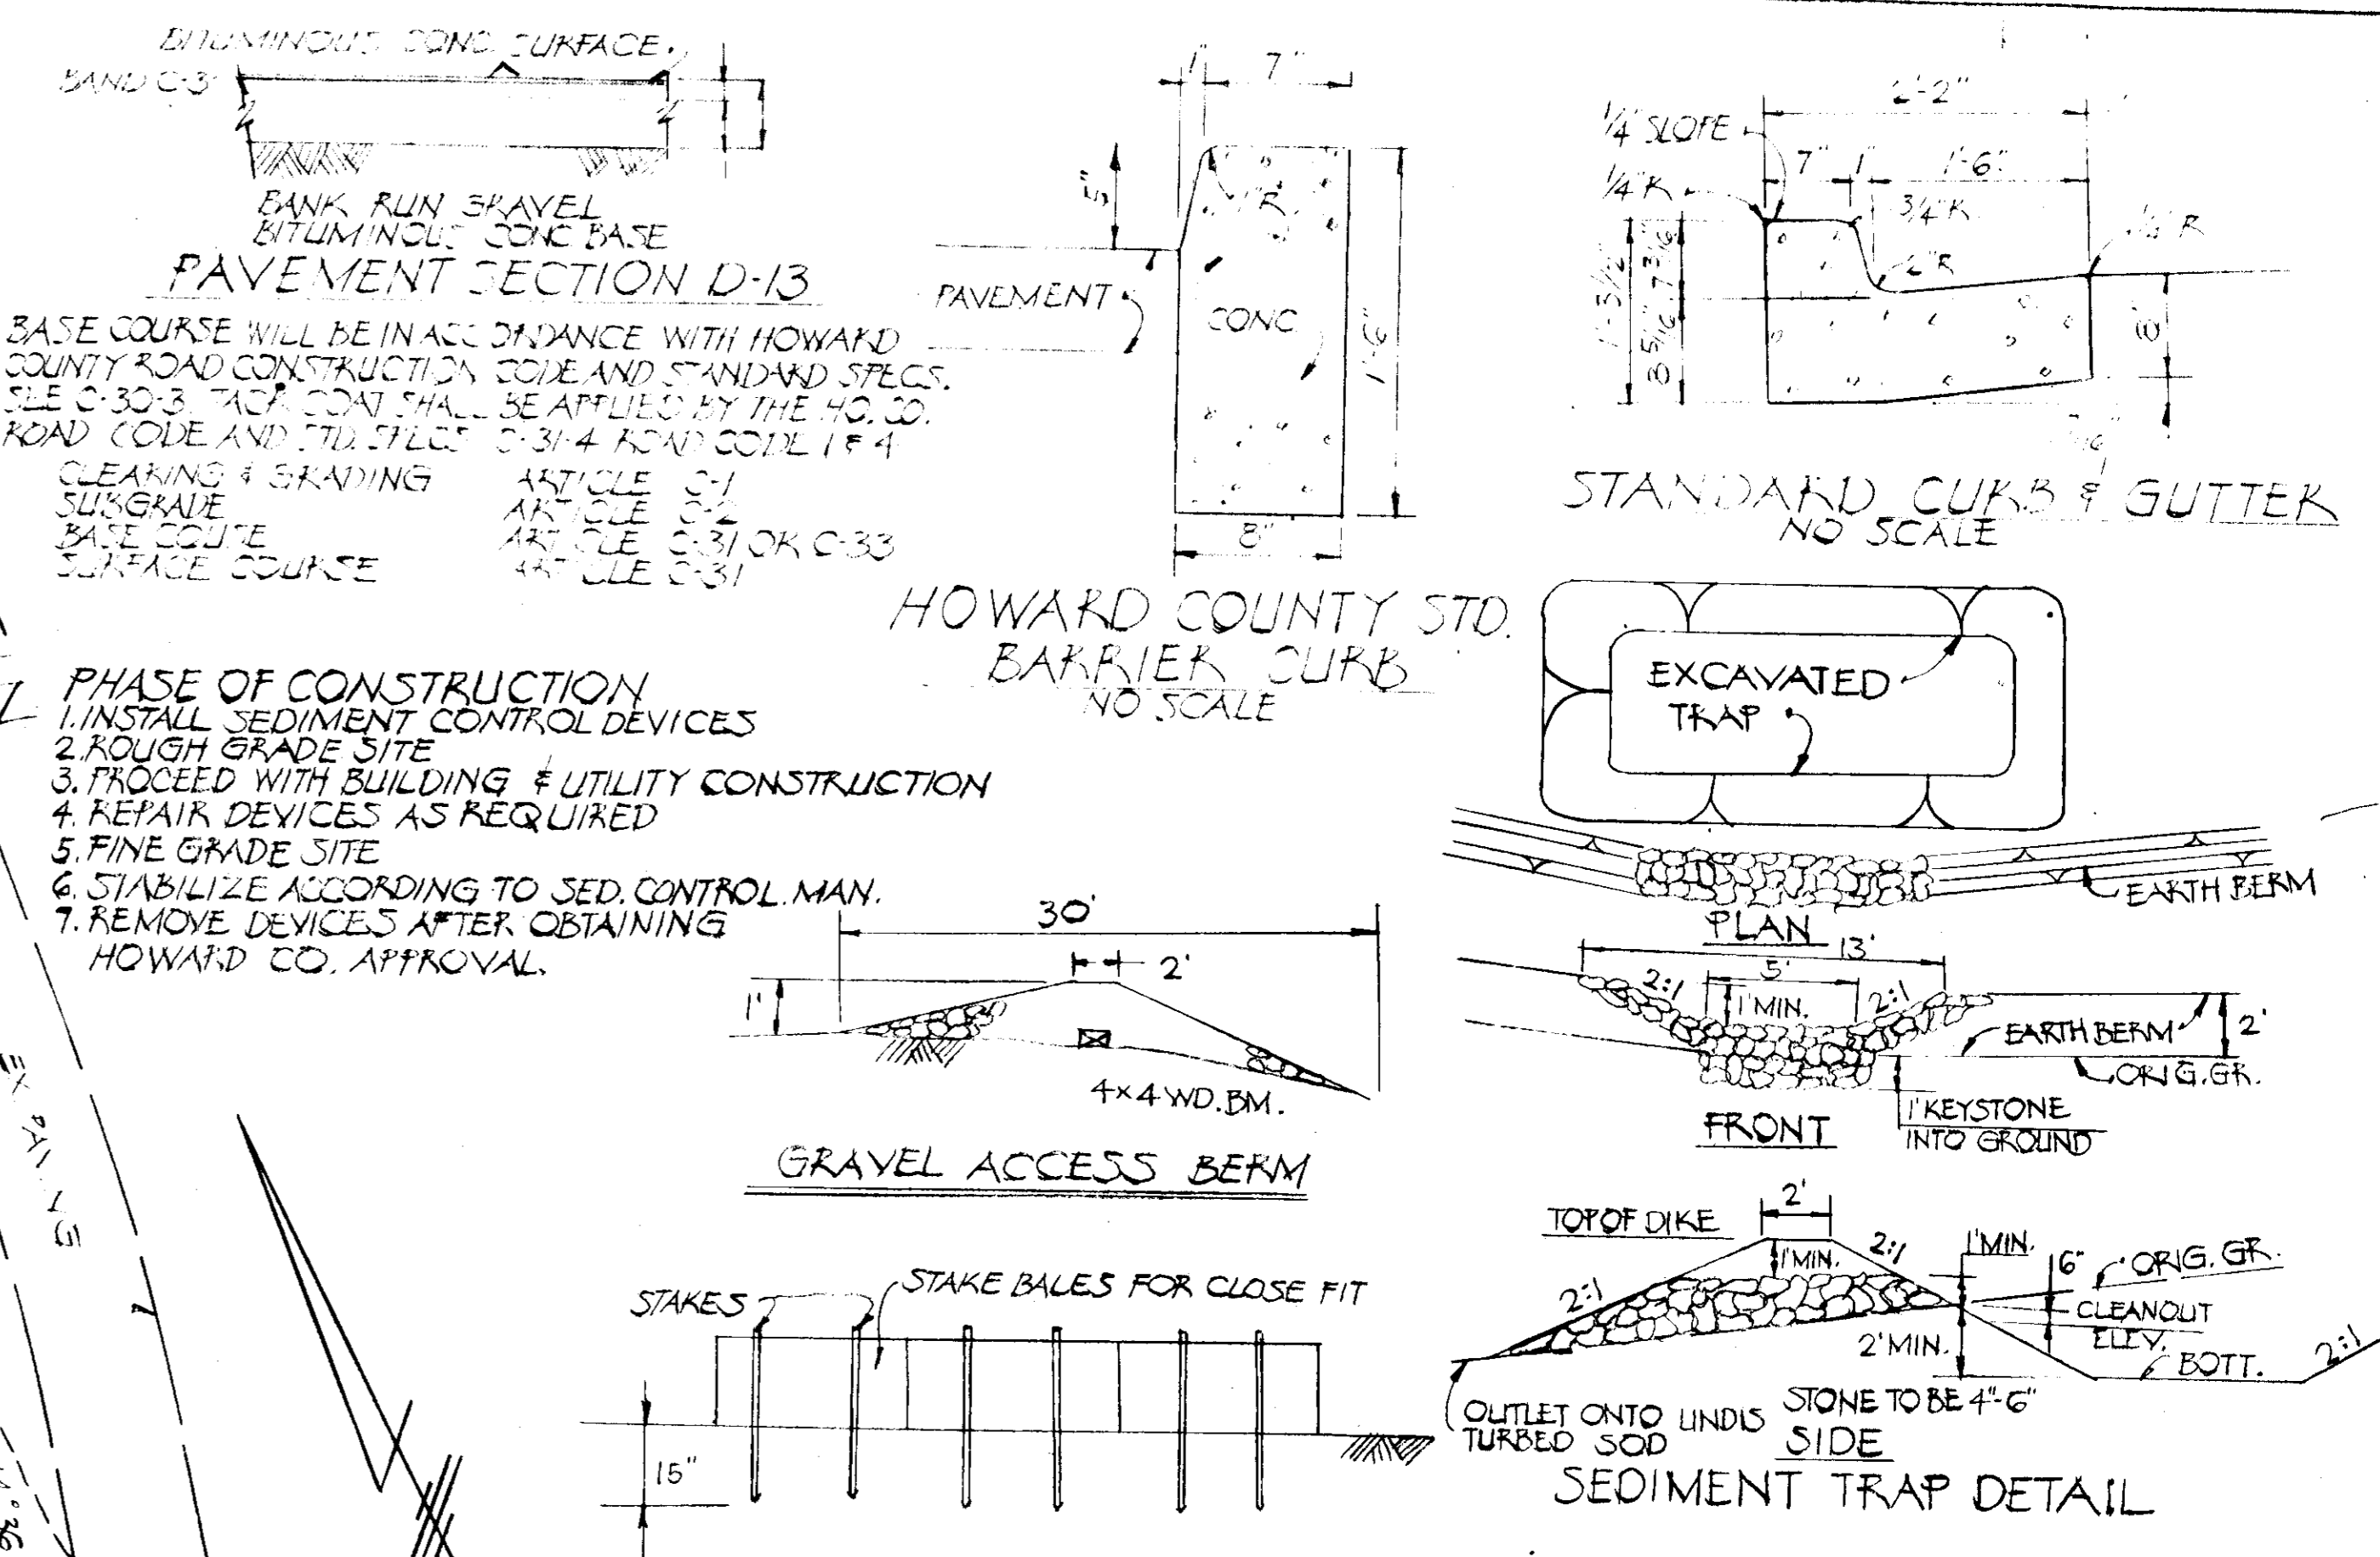 BITUMINOUS CONC. SURFACE
BAND C-3
BANK RUN GRAVEL
BITUMINOUS CONC BASE
PAVEMENT SECTION D-13
BASE COURSE WILL BE IN ACCORDANCE WITH HOWARD
COUNTY ROAD CONSTRUCTION CODE AND STANDARD SPECS.
SEE C-30-3. TACK COAT SHALL BE APPLIED BY THE HO. CO.
ROAD CODE AND STD. SPECS C-31-4 ROAD CODE 1 & 4
CLEARING & GRADING ARTICLE C-1
SUBGRADE ARTICLE C-2
BASE COURSE ARTICLE C-31 OR C-33
SURFACE COURSE ARTICLE C-31
1" 7"
5"
1"R
PAVEMENT
CONC
1'-6"
8"
HOWARD COUNTY STD.
BARRIER CURB
NO SCALE
2'-2"
1/4" SLOPE
7" 1" 1'-6"
1/4"R
3/4"R
2"R
1/4" R
1'-3 1/2"
7 3/16"
8 5/16"
8"
STANDARD CURB & GUTTER
NO SCALE
PHASE OF CONSTRUCTION
1. INSTALL SEDIMENT CONTROL DEVICES
2. ROUGH GRADE SITE
3. PROCEED WITH BUILDING & UTILITY CONSTRUCTION
4. REPAIR DEVICES AS REQUIRED
5. FINE GRADE SITE
6. STABILIZE ACCORDING TO SED. CONTROL. MAN.
7. REMOVE DEVICES AFTER OBTAINING
HOWARD CO. APPROVAL.
30'
2'
1'
4x4 WD. BM.
GRAVEL ACCESS BERM
EXCAVATED
TRAP
EARTH BERM
PLAN
13'
5'
2:1
1' MIN.
2:1
EARTH BERM
2'
ORIG. GR.
1' KEYSTONE
INTO GROUND
FRONT
EX PAVING
STAKES
STAKE BALES FOR CLOSE FIT
15"
TOP OF DIKE
2'
2:1
1' MIN.
2:1
1' MIN.
6"
ORIG. GR.
CLEANOUT
ELEV.
2' MIN.
BOTT.
2:1
OUTLET ONTO UNDIS
TURBED SOD
STONE TO BE 4"-6"
SIDE
SEDIMENT TRAP DETAIL